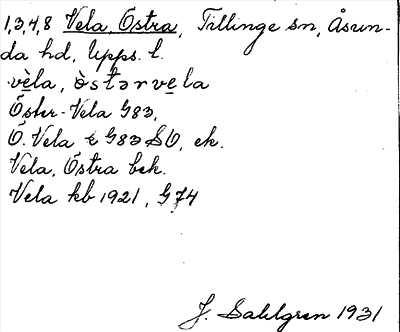 1,3,4,8 Vela, Östra, Tillinge sn, Åsun-
da hd, Upps. l.
vèla, òstərvela
Öster-Vela G83,
Ö. Vela G83 SO, ek.
Vela, Östra bek.
Vela kb 1921, G74
J. Sahlgren 1931